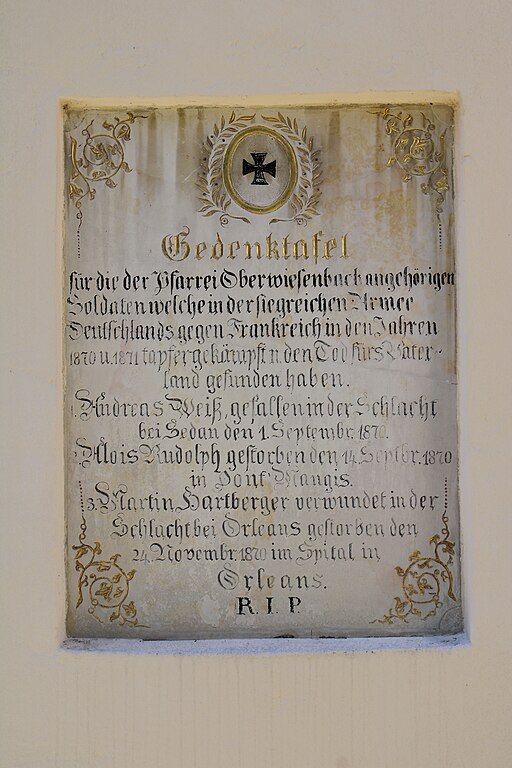 Gedenktafel
für die der Pfarrei Oberwiesenbach angehörigen
Soldaten welche in der siegreichen Armee
Deutschlands gegen Frankreich in den Jahren
1870 u. 1871 tapfer gekämpft u. den Tod fürs Vater-
land gefunden haben.
1. Andreas Weiß, gefallen in der Schlacht
bei Sedan den 1. Septembr. 1870.
2. Alois Rudolph gestorben den 14. Septbr. 1870
in Pont Mangis.
3. Martin Hartberger verwundet in der
Schlacht bei Orleans gestorben den
24. Novembr. 1870 im Spital in
Orleans.
R. I. P.